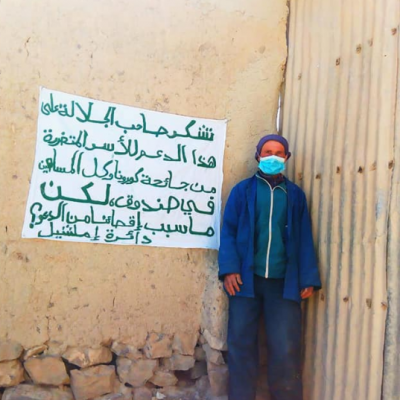 نشكر صاحب الجلالة على
هذا الدعم للأسر المتضررة
من جائحة كورونا وكل المساهمين
في صندوقه، لكن
ما سبب إقصائنا من الدعم؟
دائرة إملشيل